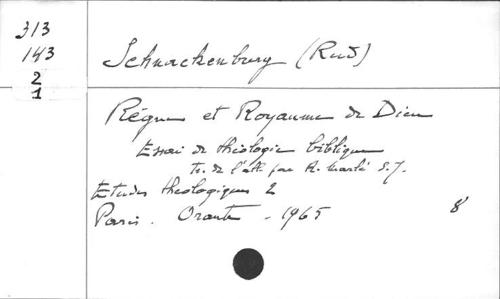 313
143
2
1
Schnackenburg (Rud)
Règne et Royaume de Dieu
Essai de théologie biblique
tr. de l'all. par R. Marlé S.J.
Etudes theologiques 2
Paris. Orante - 1965
8°